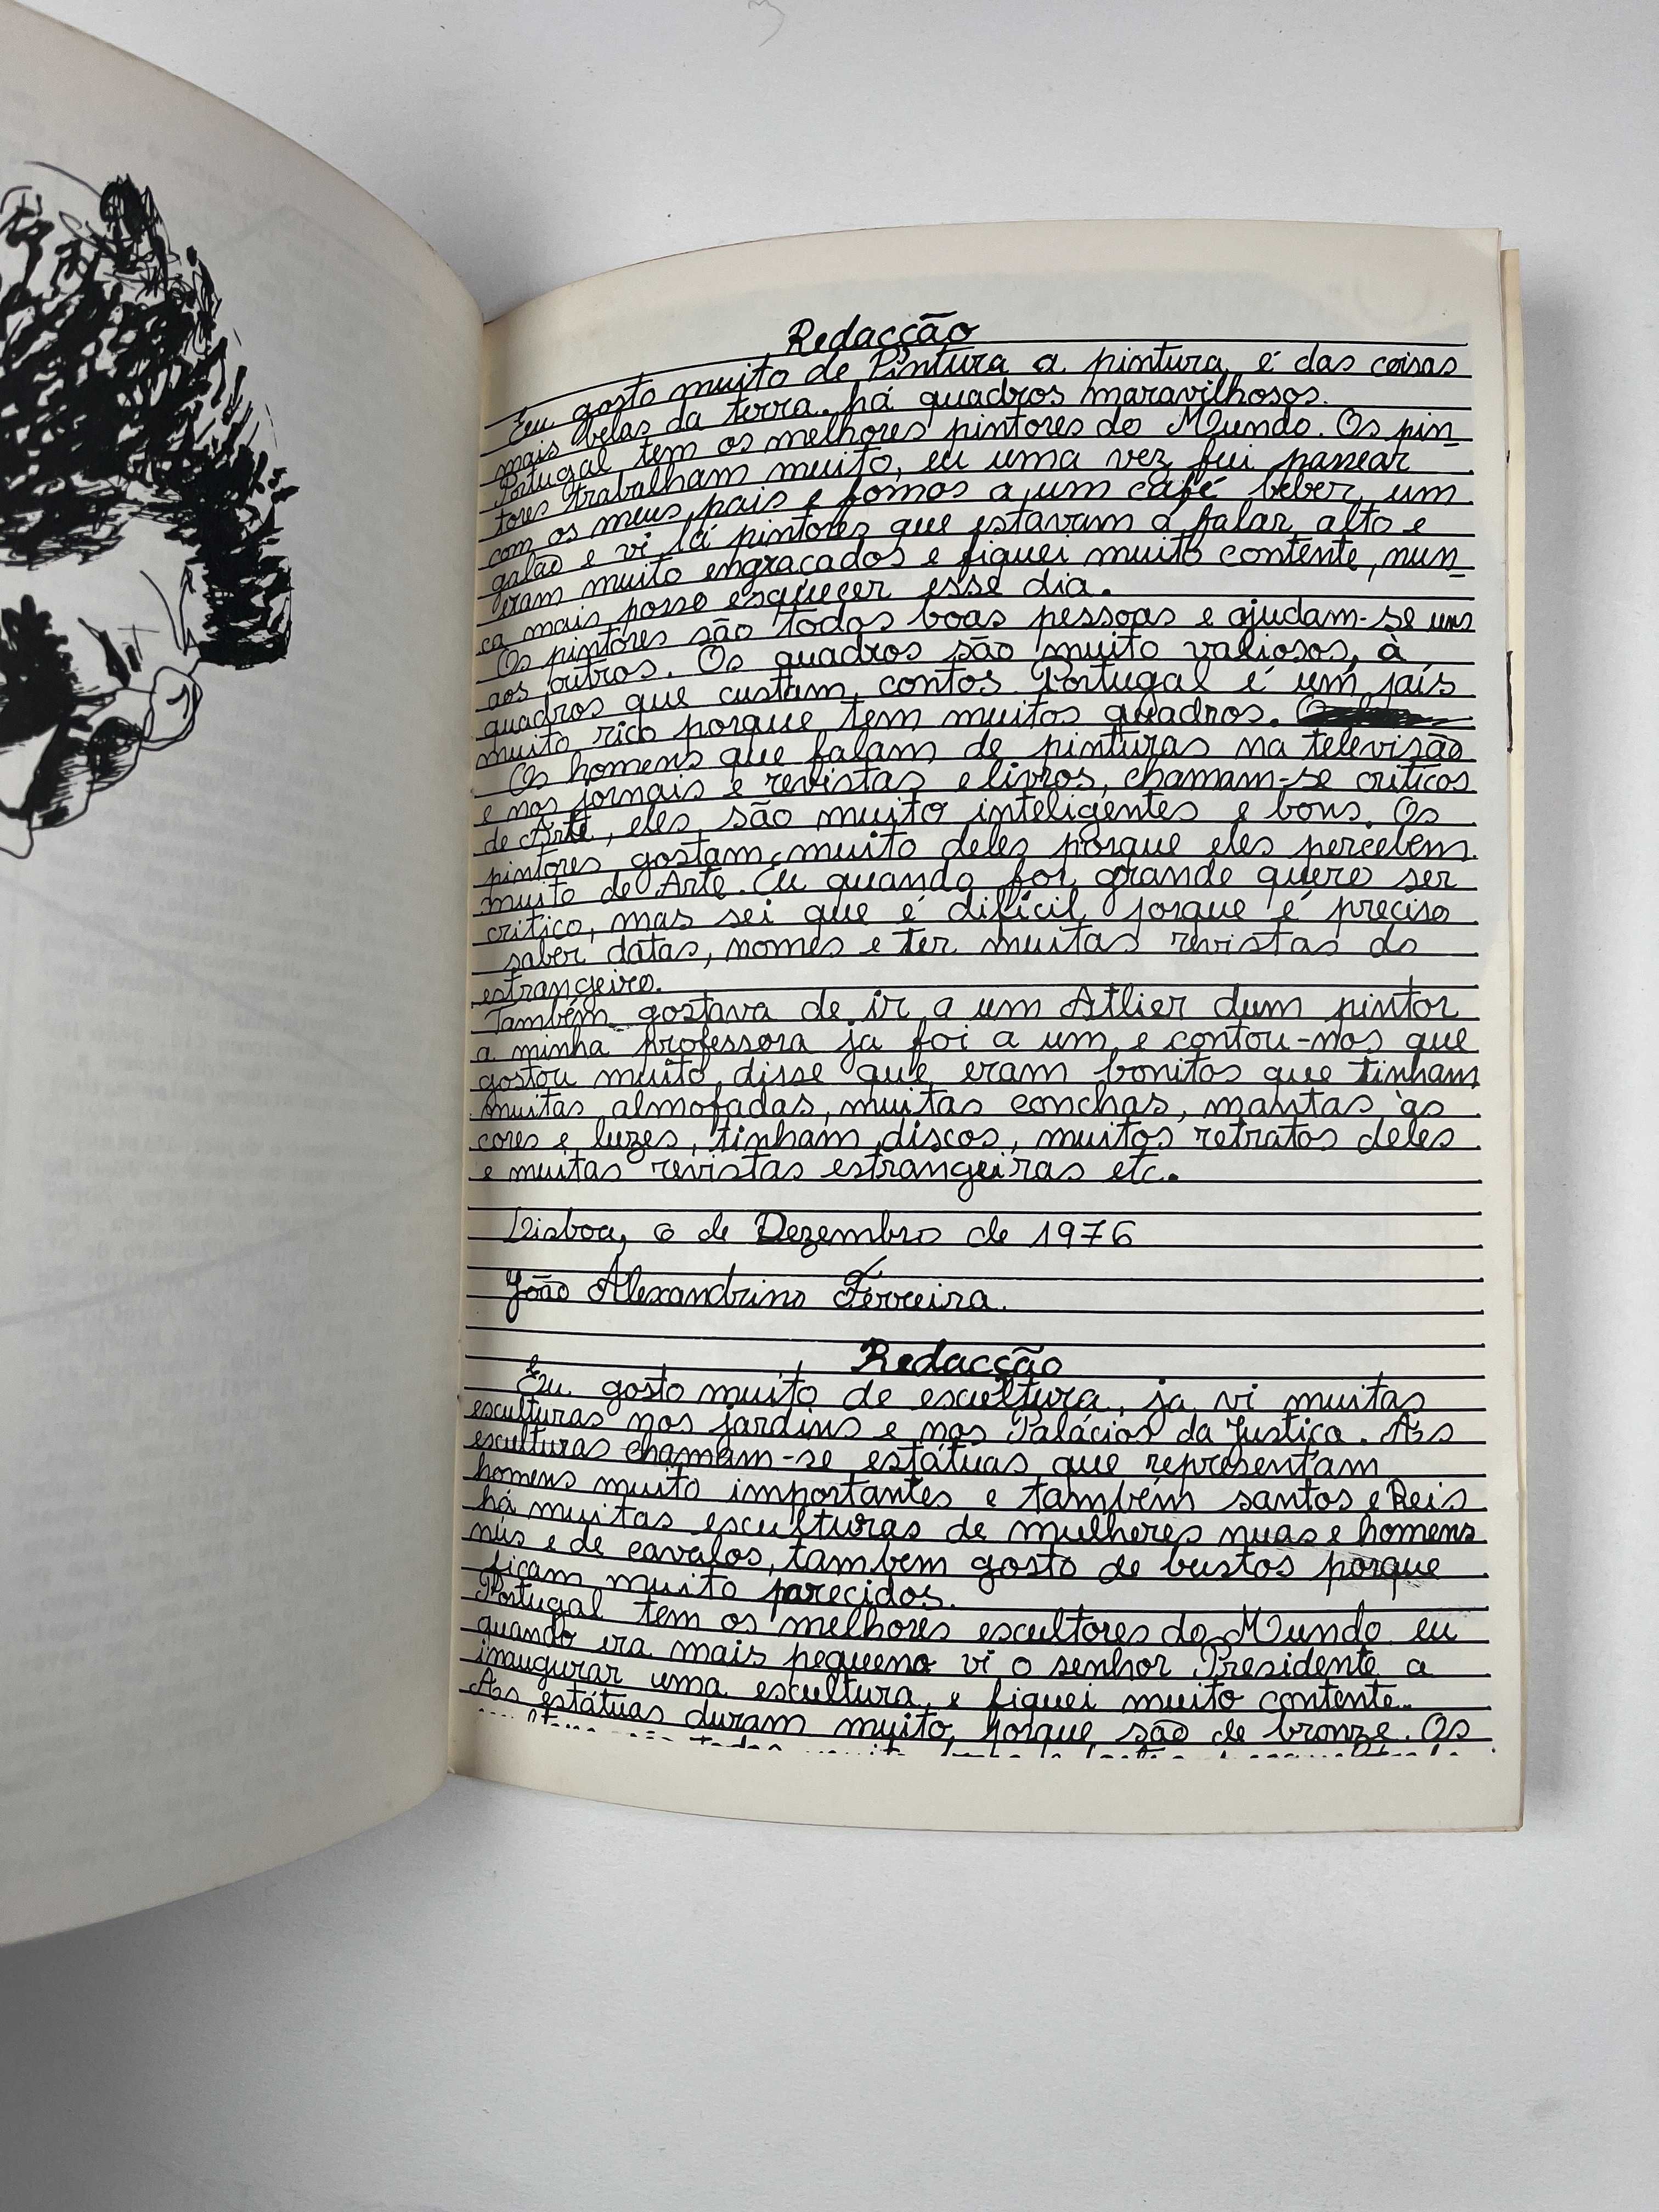 Redacção
Eu gosto muito de Pintura a pintura é das coisas
mais belas da terra. há quadros maravilhosos.
Portugal tem os melhores pintores do Mundo. Os pin-
tores trabalham muito, eu uma vez fui passear
com os meus pais e fomos a um café beber um
galão e vi lá pintores que estavam a falar alto e
eram muito engraçados e fiquei muito contente, nun-
ca mais posso esquecer esse dia.
Os pintores são todos boas pessoas e ajudam-se uns
aos outros. Os quadros são muito valiosos, à
quadros que custam contos. Portugal é um país
muito rico porque tem muitos quadros.
Os homens que falam de pinturas na televisão
e nos jornais e revistas e livros, chamam-se criticos
de Arte, eles são muito inteligentes e bons. Os
pintores gostam muito deles porque eles percebem
muito de Arte. Eu quando for grande quero ser
critico, mas sei que é difícil porque é preciso
saber datas, nomes e ter muitas revistas do
estrangeiro.
Também gostava de ir a um Atlier dum pintor
a minha professora ja foi a um e contou-nos que
gostou muito disse que eram bonitos que tinham
muitas almofadas, muitas conchas, mantas às
cores e luzes, tinham discos, muitos retratos deles
e muitas revistas estrangeiras etc.
Lisboa, 6 de Dezembro de 1976
João Alexandrino Ferreira.
Redacção
Eu gosto muito de escultura, ja vi muitas
esculturas nos jardins e nos Palácios da Justiça. As
esculturas chamam-se estátuas que representam
homens muito importantes e também santos e Reis
há muitas esculturas de mulheres nuas e homens
nús e de cavalos, tambem gosto de bustos porque
ficam muito parecidos.
Portugal tem os melhores escultores do Mundo eu
quando era mais pequeno vi o senhor Presidente a
inaugurar uma escultura e fiquei muito contente.
As estátuas duram muito, porque são de bronze. Os